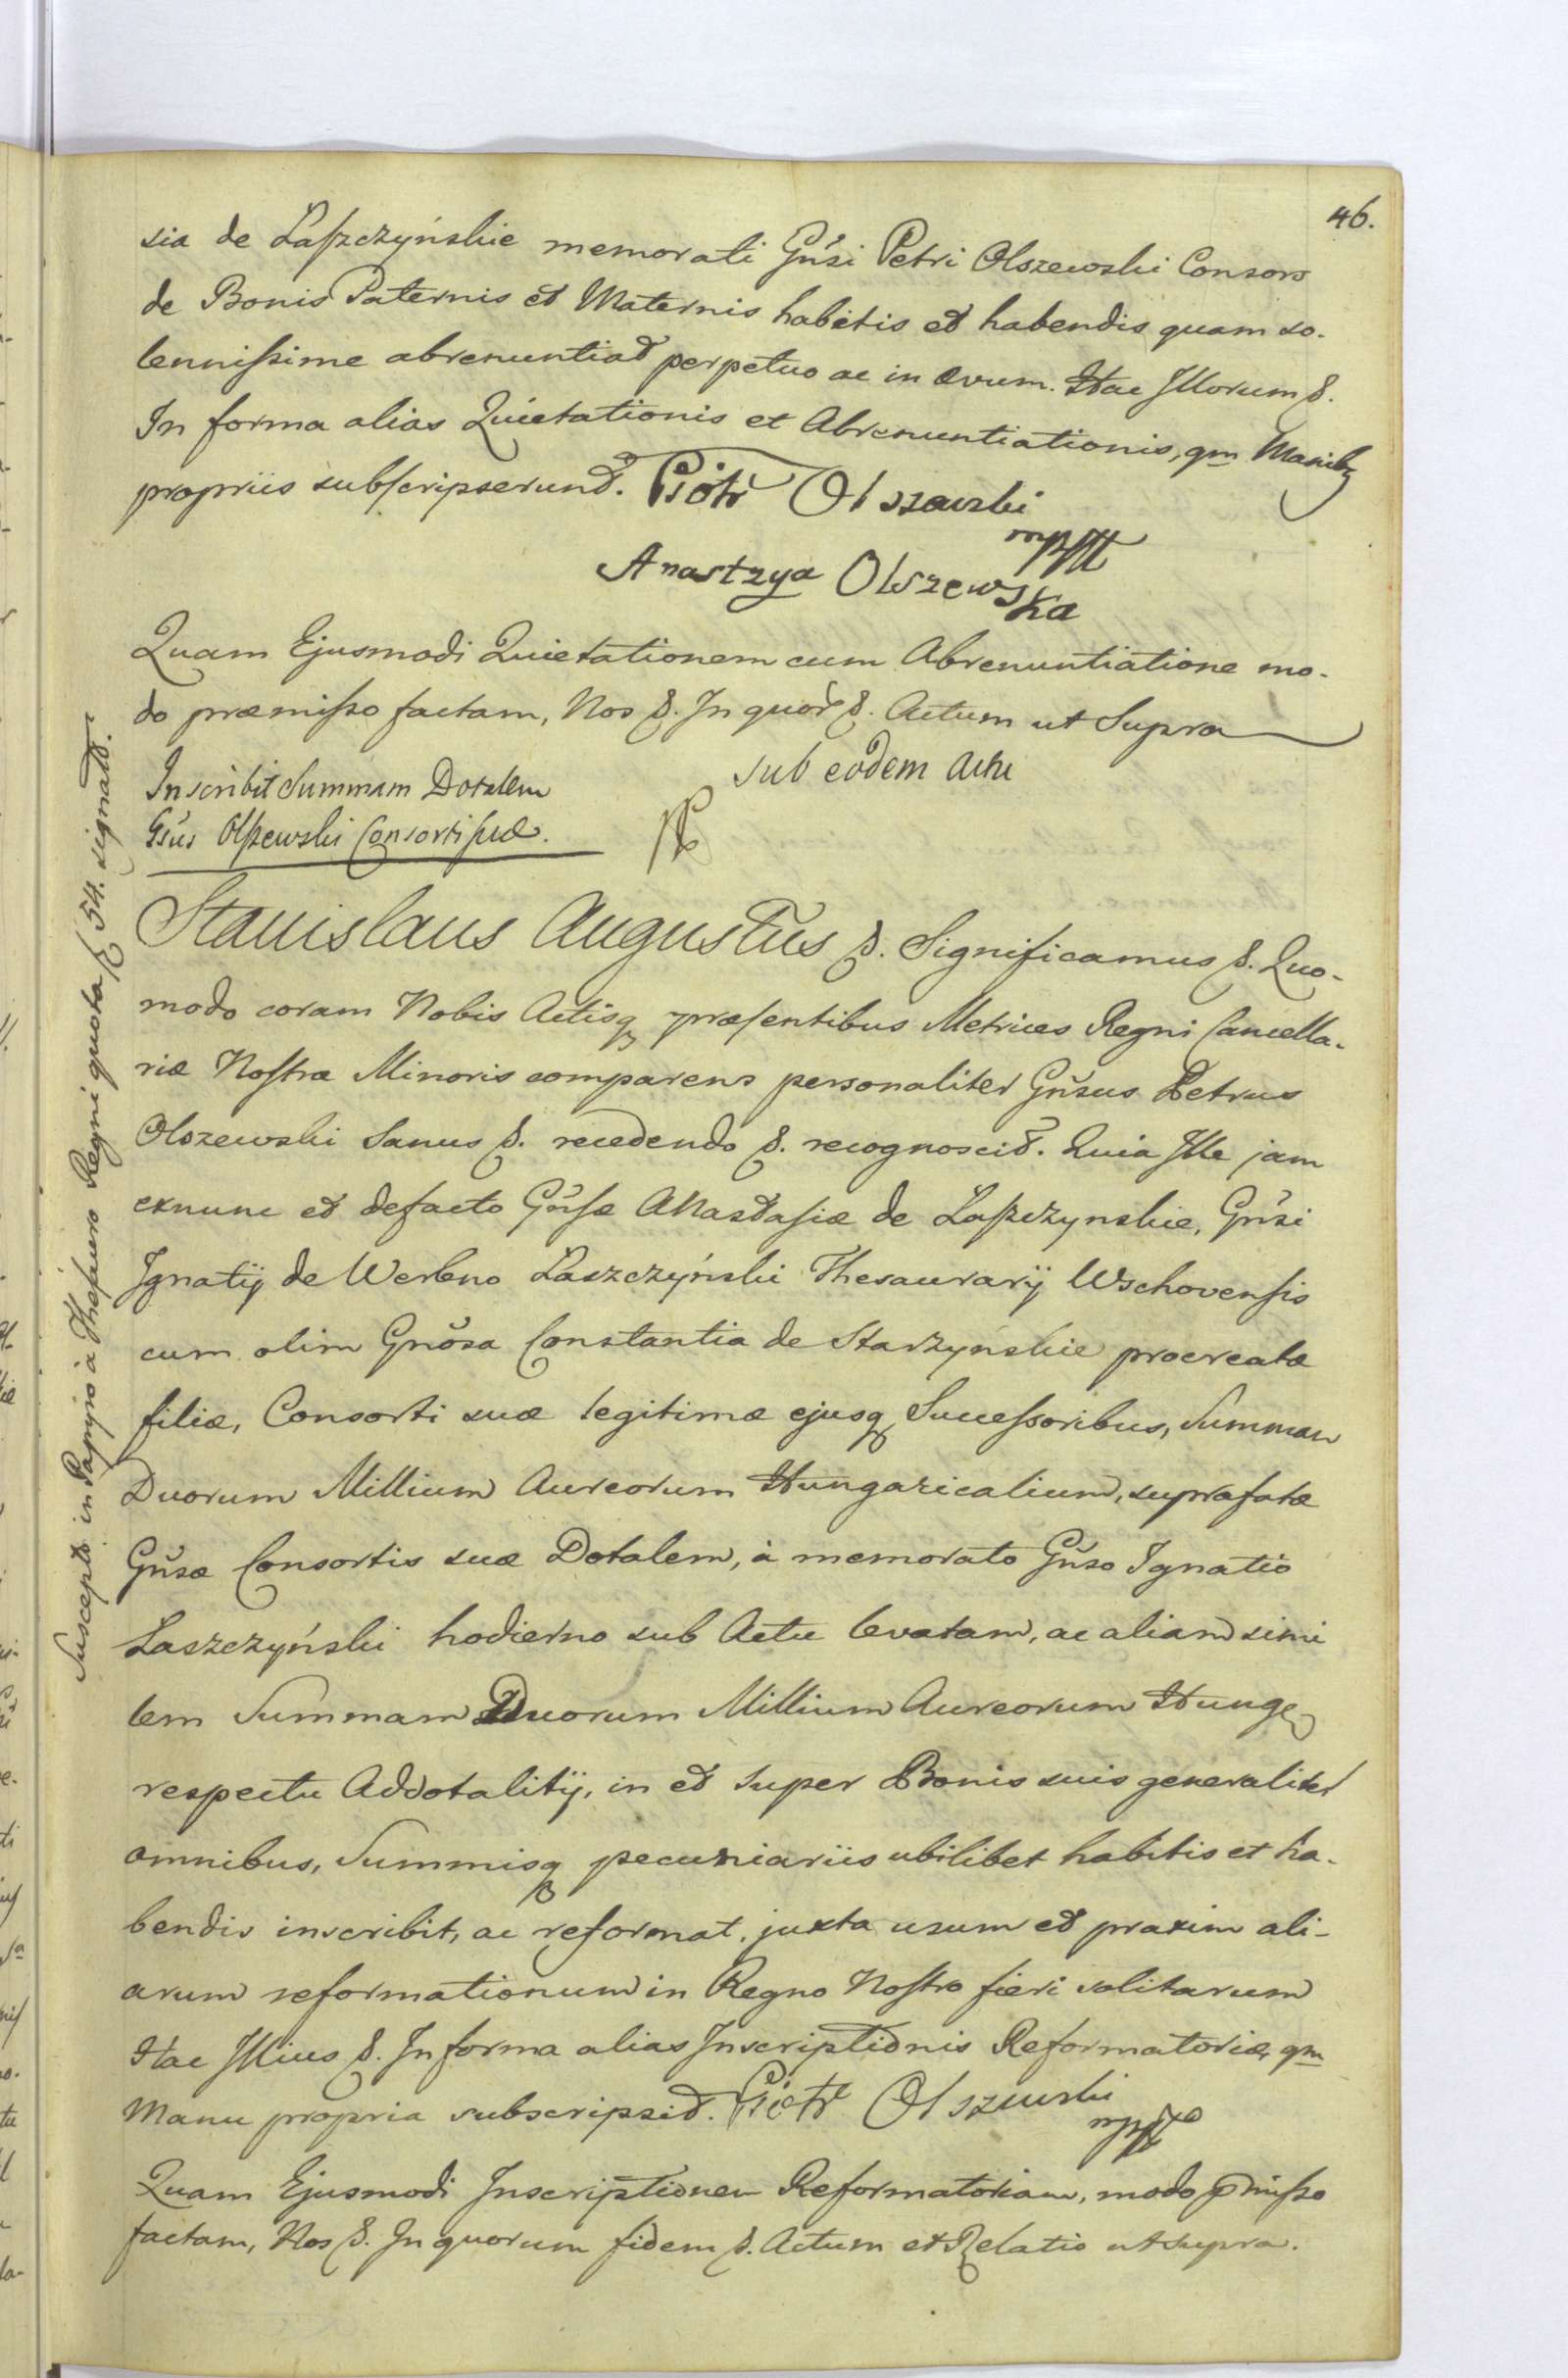 46.
sia de Łaſzczyńskie memorati Gn̄si Petri Olszewski Consors
de Bonis Paternis et Maternis habitis et habendis quam so-
lenniſsime abrenuntiat perpetuo ac in ævum. Hac Illorum &.
In forma alias Quietationis et Abrenuntiationis, qm Manibq
propriis subſcripserunt. Piotr Olszewski
mpp
Anastzya Olszewska
Quam Ejusmodi Quietationem cum Abrenuntiatione mo-
do præmiſso factam, Nos &. In quor &. Actum ut Supra
Inscribit Summam Dotalem
Gsus Olſzewski Consorti ſuæ.
sub eodem Actu
Stanislaus Augustus &. Significamus &. Quo-
modo coram Nobis Actisq præſentibus Metrices Regni Cancella-
riæ Noſtræ Minoris comparens personaliter Gn̄sus Petrus
Olszewski Sanus &. recedendo &. recognoscit. Quia Ille jam
exnunc et defacto Gn̄ſæ Anastaſiæ de Laſzczynskie, Gn̄si
Ignatij de Werbno Łaszczyński Thesaurarij Wschovenſis
cum olim Gnōsa Constantia de Starzynskie procreatæ
filiæ, Consorti suæ legitimæ ejusq Succeſsoribus, Summam
Duorum Millium Aureorum Hungaricalium, suprafatæ
Gn̄sæ Consortis suæ Dotalem, à memorato Gn̄so Ignatio
Laszczyński hodierno sub Actu levatam, ac aliam simi
lem Summam Duorum Millium Aureorum Hung
respectu Addotalitij, in et super Bonis suis generaliter
omnibus, Summisq pecuniariis ubilibet habitis et ha-
bendis inscribit, ac reformat, juxta usum et praxim ali-
arum reformationum in Regno Noſtro fieri solitarum
Hac Illius &. In forma alias Inscriptionis Reformatoriæ, qm
Manu propria subscripsit. Piotr Olszewski
mpp
Quam Ejusmodi Inscriptionem Reformatoriam, modo p̄miſso
factam, Nos &. In quorum fidem &. Actum et Relatio ut supra.
Suscept. in Papyro à Theſauro Regni quota ſz 54. signat.